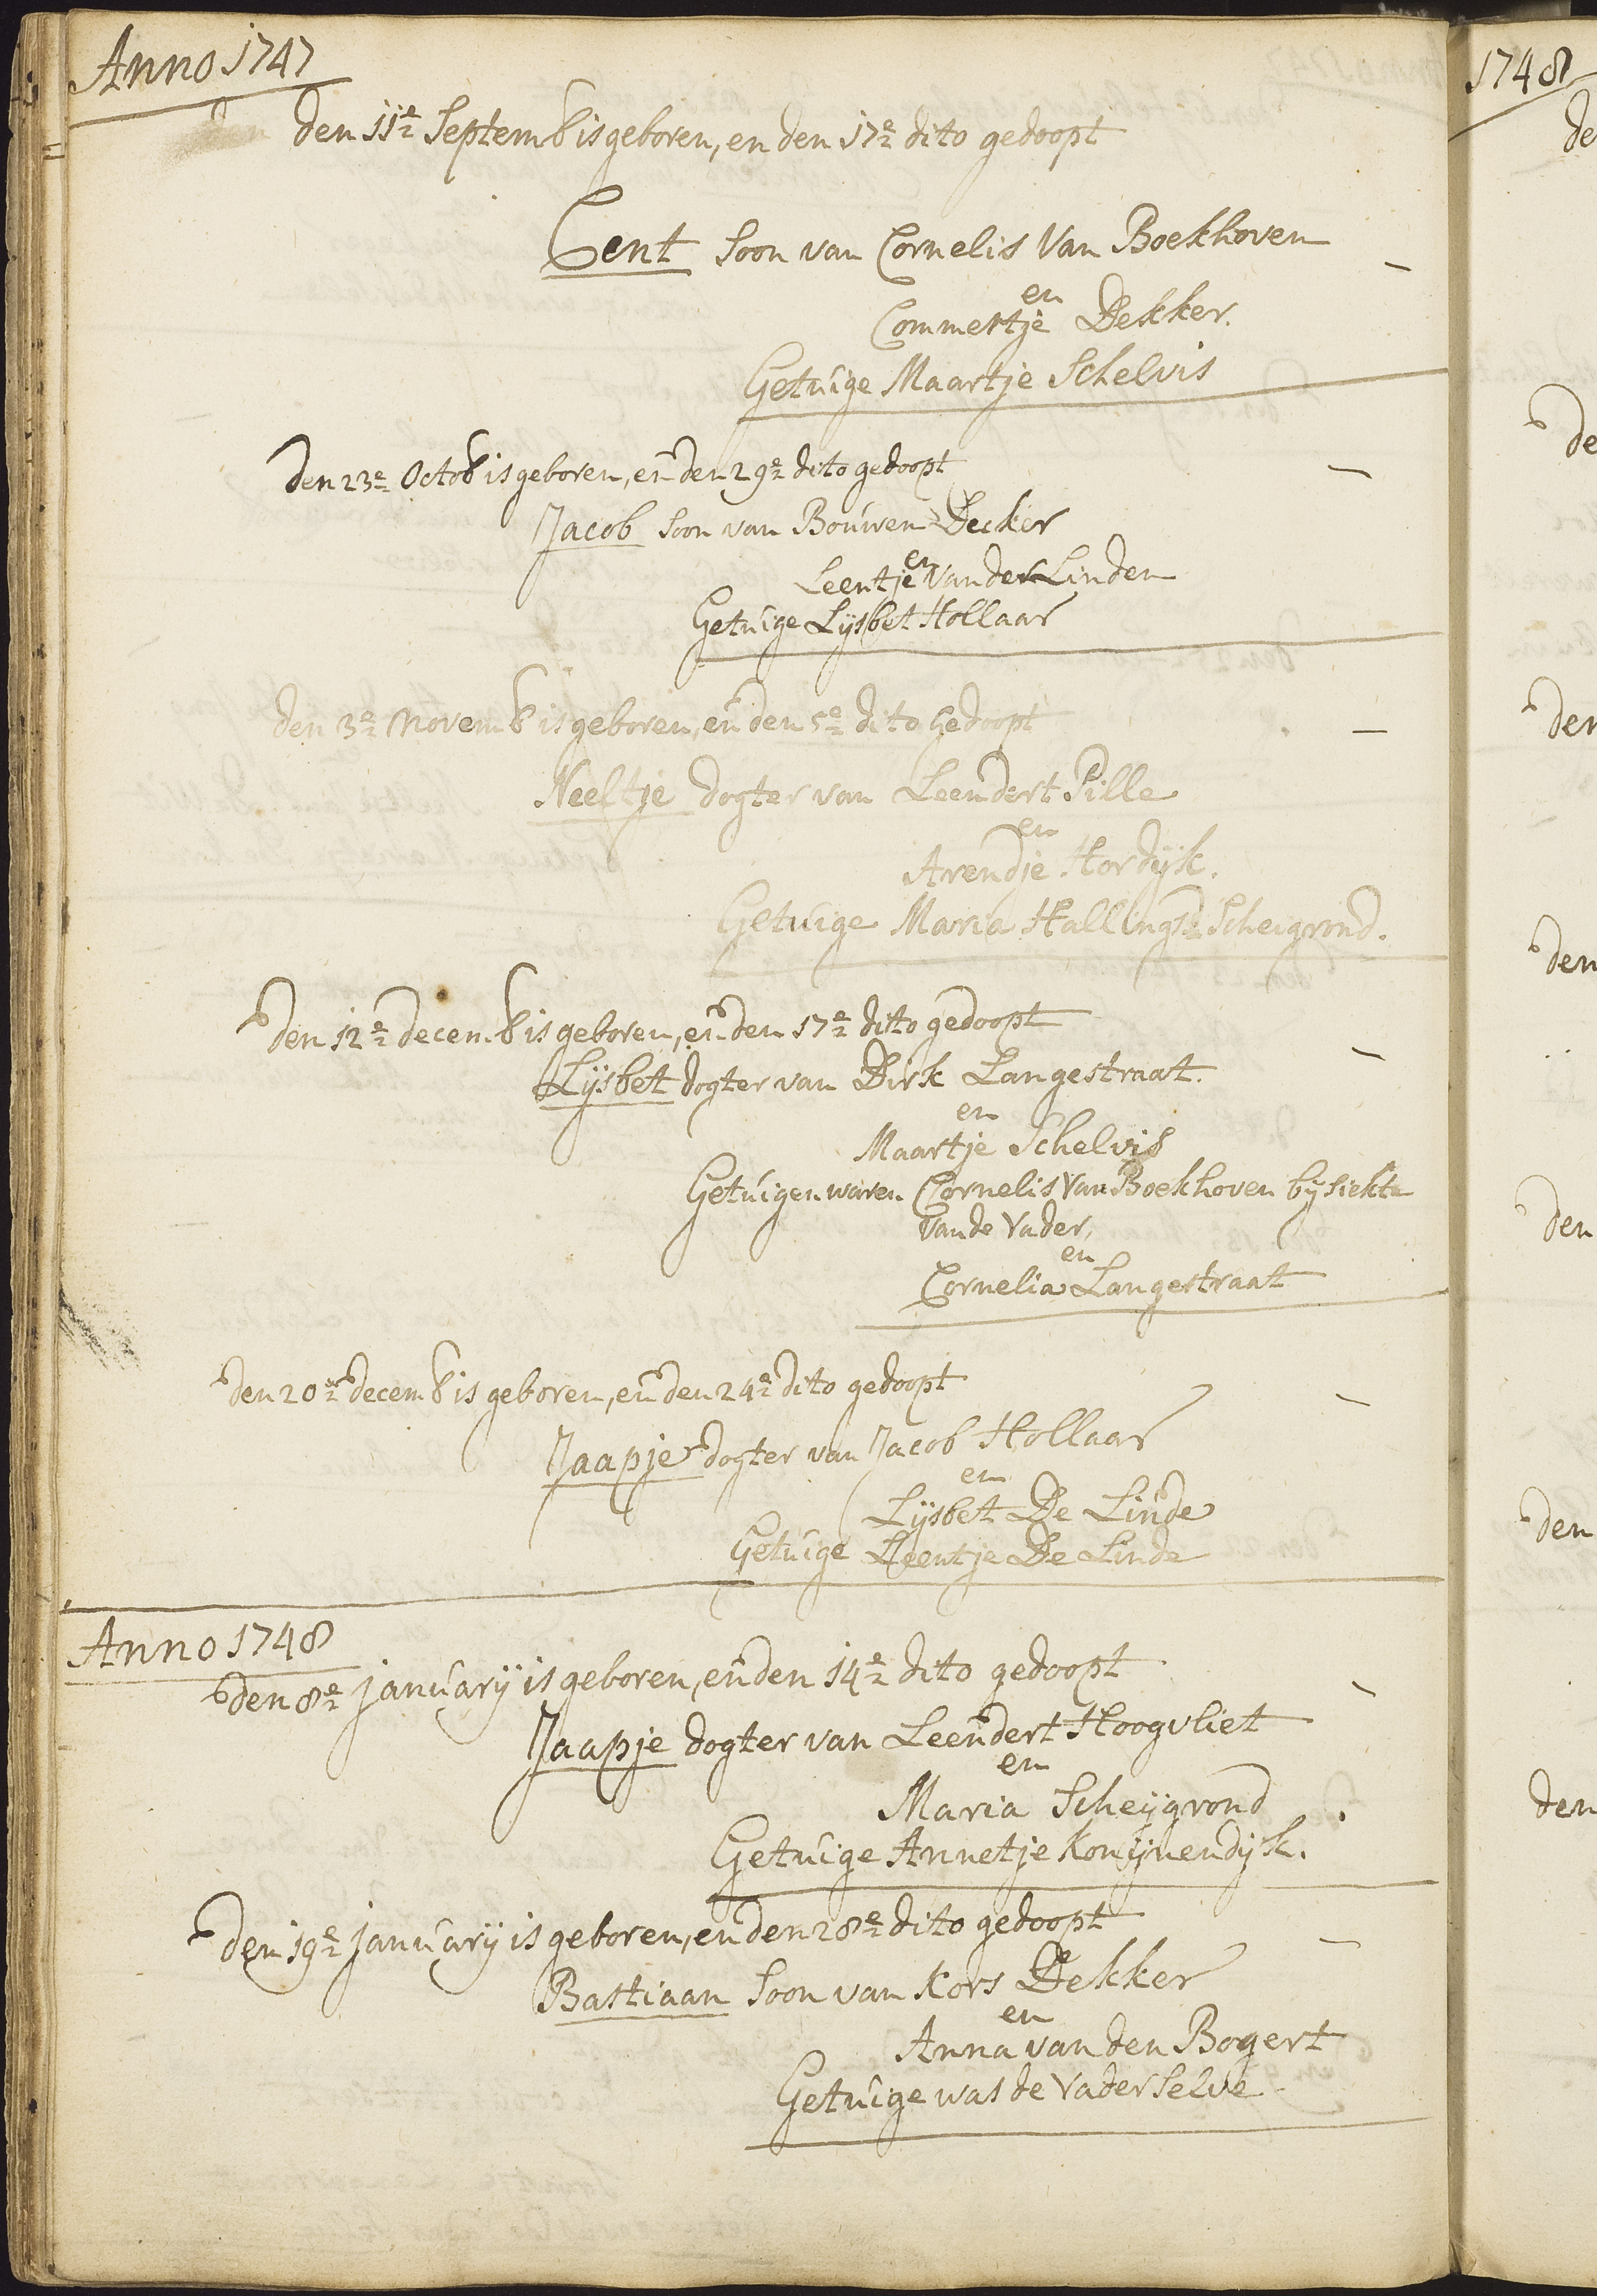 Anno 1747
den 11e Septemb is geboren, en den 17e dito gedoopt
Cent Soon van Cornelis Van Boekhoven
en
Commertje Dekker.
Getuige Maartje Schelvis
den 23e Octob is geboren, en den 29e dito gedoopt
Jacob Soon van Bouwen Decker
en
Leentje Vander Linden
Getuige Lijsbet Hollaar
den 3e Novemb is geboren, en den 5e dito Gedoopt
Neeltje dogter van Leendert Pille
en
Arendje Hordijk.
Getuige Maria Hallingse Scheigrond.
den 12e decemb is geboren, en den 17e dito gedoopt
Lijsbet dogter van Dirk Langestraat.
en
Maartje Schelvis
Getuigen waren Cornelis Van Boekhoven bij siekte
Van de Vader,
en
Cornelia Langestraat
den 20e decemb is geboren, en den 24e dito gedoopt
Jaapje dogter van Jacob Hollaar
en
Lijsbet De Linde
Getuige Leentje De Linde
Anno 1748
den 8e januarij is geboren, en den 14e dito gedoopt
Jaapje dogter van Leendert Hoogvliet
en
Maria Scheijgrond
Getuige Annetje Konijnendijk.
den 19e januarij is geboren, en den 28e dito gedoopt
Bastiaan Soon van Kors Dekker
en
Anna van den Bogert
Getuige was de Vader Selve
1748
de
de
den
den
den
den
den